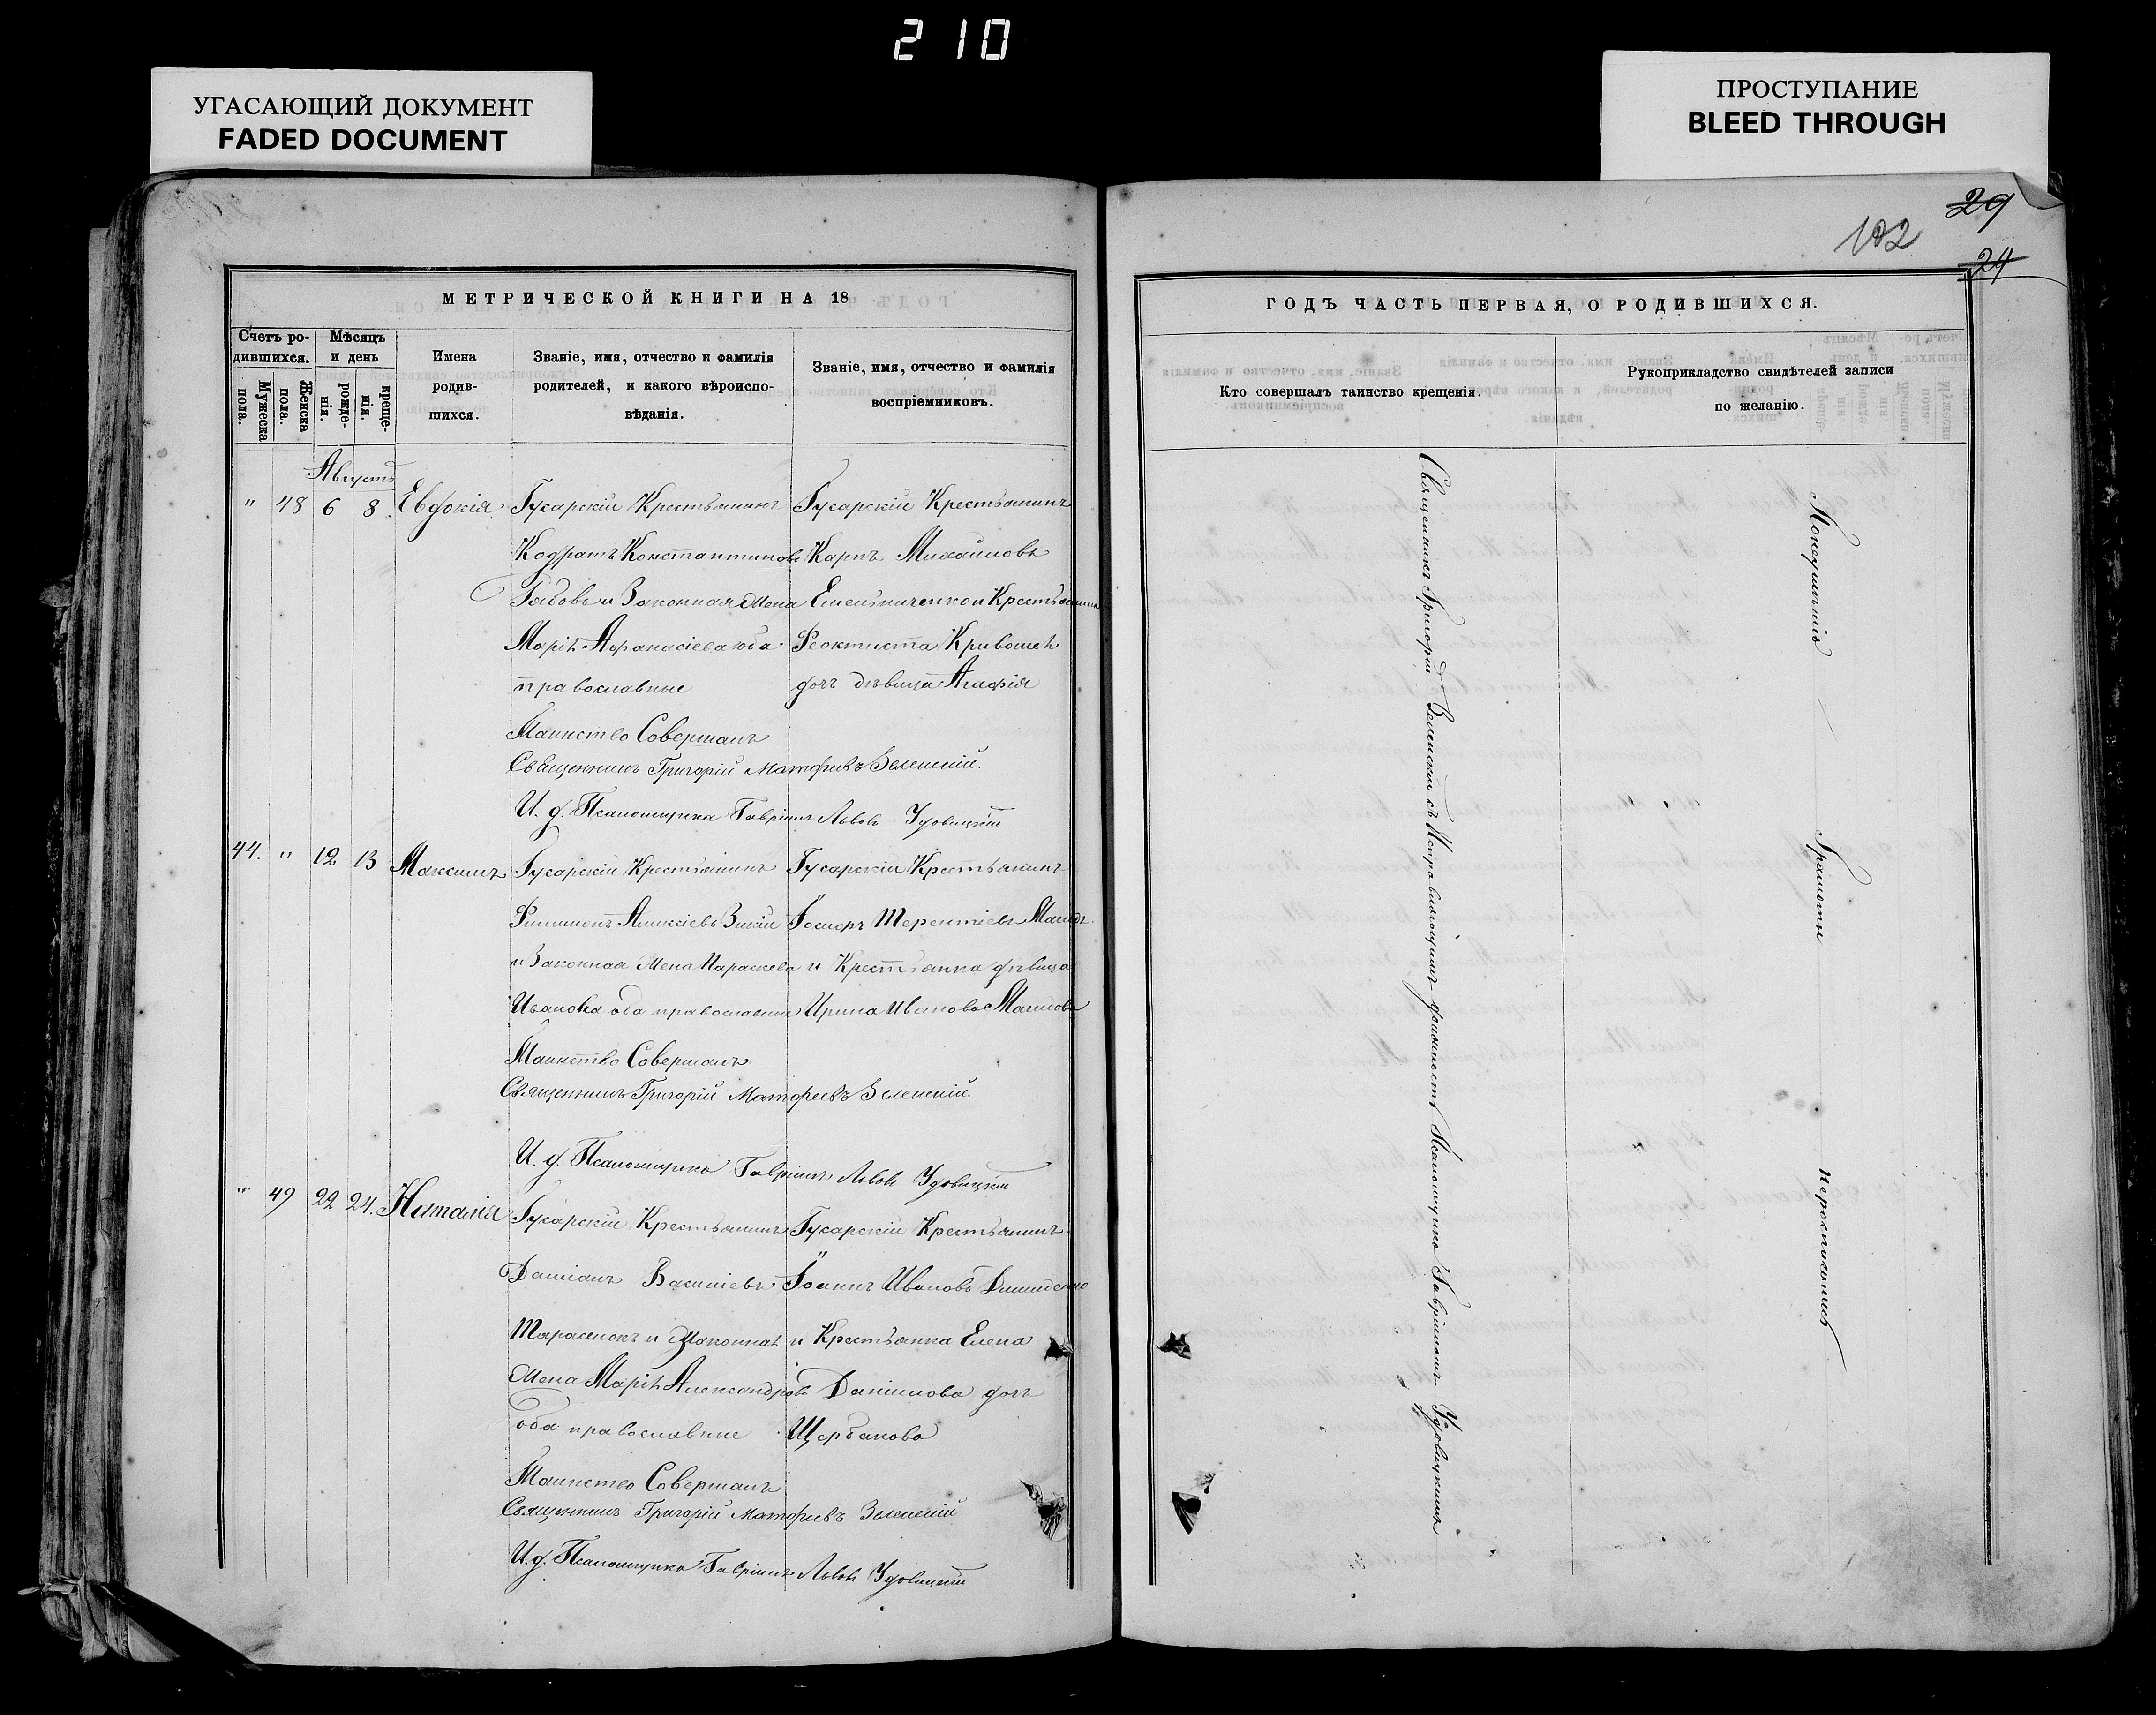 210
УГАСАЮЩИЙ ДОКУМЕНТ
FADED DOCUMENT
ПРОСТУПАНИЕ
BLEED THROUGH
29
102
24
МЕТРИЧЕСКОЙ КНИГИ НА 18
Счетъ родившихся.
Мужеска пола.
Женска пола.
Мѣсяцъ и день
рожденія.
крещенія.
Имена
родив-
шихся.
Званіе, имя, отчество и фамилія
родителей, и какого вѣроиспо-
вѣданія.
Званіе, имя, отчество и фамилія
воспріемниковъ.
Августъ
" 48 6 8 Евдокія
Гусарскій Крестьянинъ
Кодратъ Константиновъ
и Законная Жена
Марія Афанасіева оба
православные
Гусарскій Крестьянинъ
Карпъ Михайловъ
Феоктиста
дочь дѣвица
Таинство Совершалъ
Священникъ Григорій Матфіевъ Зеленскій.
И. д. Псаломщика Гавріилъ Львовъ Удовицкій
44. " 12 13 Максимъ
Гусарскій Крестьянинъ
Филимонъ Алексіевъ
и Законная Жена Параскева
Иванова оба православные
Гусарскій Крестьянинъ
Іосифъ Терентіевъ
и Крестьянка дѣвица
Ирина Иванова
Таинство Совершалъ
Священникъ Григорій Матфіевъ Зеленскій.
И. д. Псаломщика Гавріилъ Львовъ Удовицкій
" 49 22 24. Наталія
Гусарскій Крестьянинъ
Даміанъ Василіевъ
и Законная
Жена Марія Александрова
оба православные
Гусарскій Крестьянинъ
Іоаннъ Ивановъ
и Крестьянка Елена
Даніилова дочь
Щербакова
Таинство Совершалъ
Священникъ Григорій Матфіевъ Зеленскій
И. д. Псаломщика Гавріилъ Львовъ Удовицкій
ГОДЪ ЧАСТЬ ПЕРВАЯ, О РОДИВШИХСЯ.
Кто совершалъ таинство крещенія.
Рукоприкладство свидѣтелей записи
по желанію.
Священникъ Григорій Зеленскій съ Исправляющимъ должность Псаломщика Гавріиломъ Удовицкимъ
Грамоты